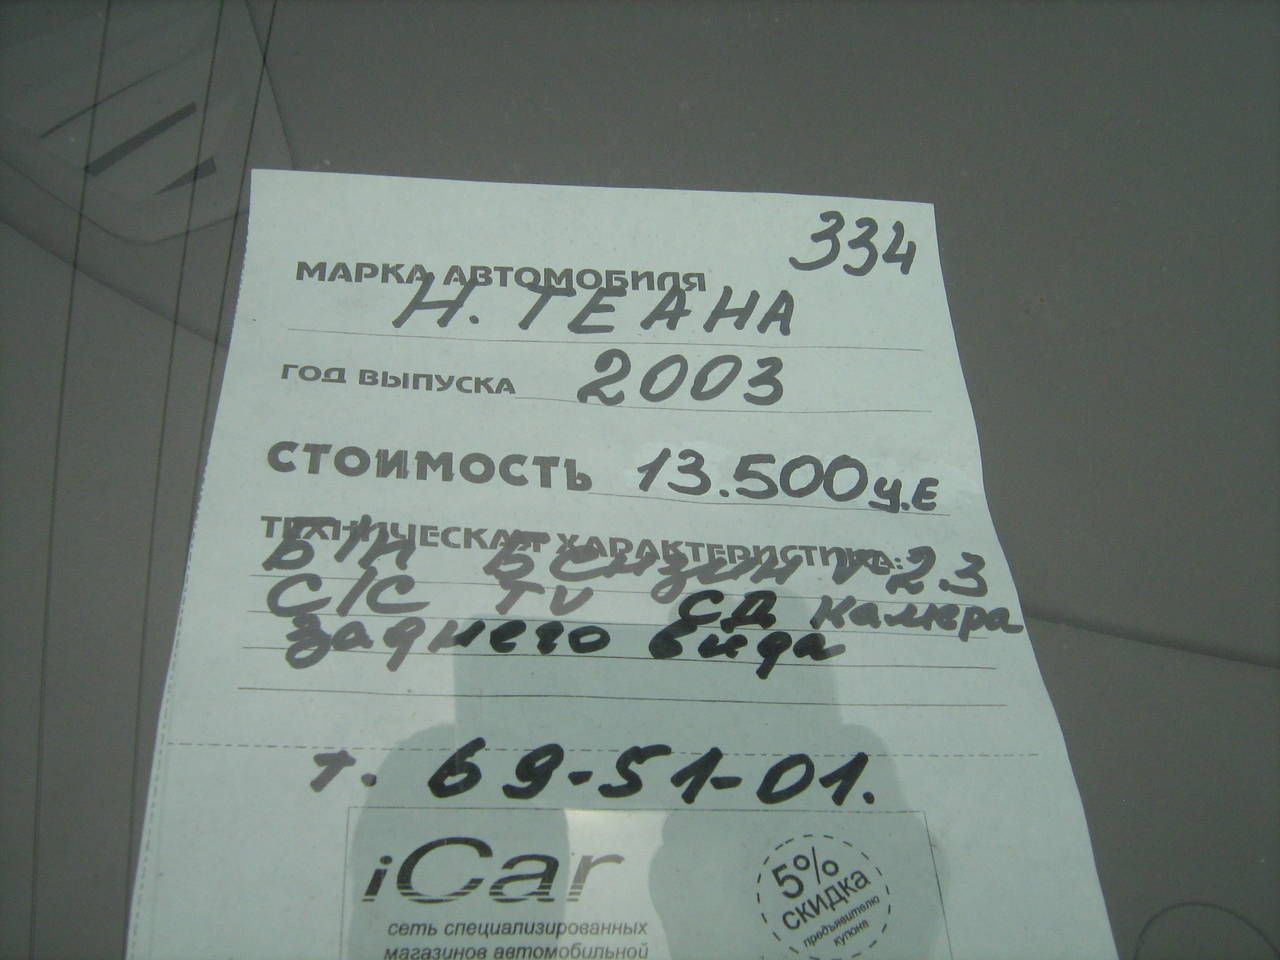 334
МАРКА АВТОМОБИЛЯ
Н. ТЕАНА
ГОД ВЫПУСКА 2003
СТОИМОСТЬ 13.500 у.Е
ТЕХНИЧЕСКАЯ ХАРАКТЕРИСТИКА:
Б/Н Бензин V 2.3
С/С TV СД Камера
заднего вида
т. 69-51-01.
iCar
сеть специализированных
магазинов автомобильной
5%
СКИДКА
предъявителю
купона